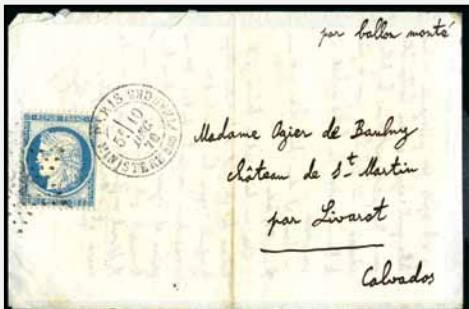 par ballon monté
REPUB FRANC
PARIS
5E
10
DEC
70
MINISTERE DES FINANCES
Madame Ogier de Baulny
château de St Martin
par Livarot
Calvados